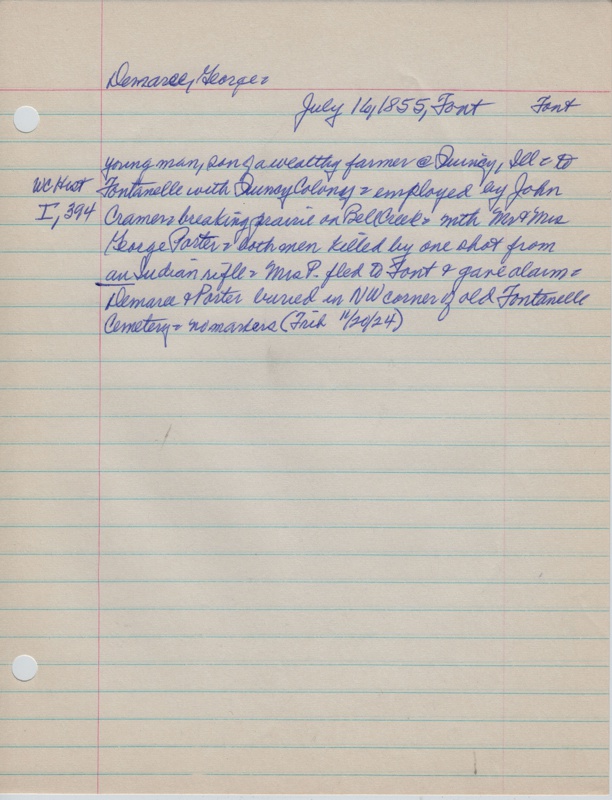 Demaree, George =
July 16, 1855, Font Font
young man, son of a wealthy farmer @ Quincy, Ill = to
WC Hist Fontanelle with Quincy Colony = employed by John
I, 394 Cramer = breaking prairie on Bell Creek = with Mr & Mrs
George Porter = both men killed by one shot from
an Indian rifle = Mrs P. fled to Font & gave alarm =
Demaree & Porter buried in NW corner of old Fontanelle
Cemetery = no markers (Trib 11/20/24)